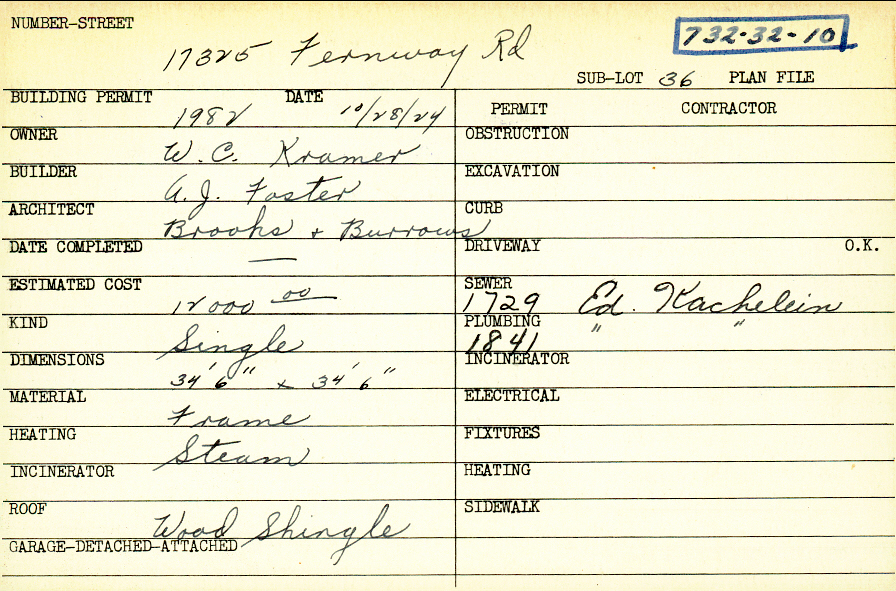 NUMBER-STREET
17325 Fernway Rd
732-32-10
SUB-LOT 36 PLAN FILE
BUILDING PERMIT 1982 DATE 10/28/24
OWNER W. C. Kramer
BUILDER A. J. Foster
ARCHITECT Brooks + Burrows
DATE COMPLETED —
ESTIMATED COST 12000 00
KIND Single
DIMENSIONS 34' 6" x 34' 6"
MATERIAL Frame
HEATING Steam
INCINERATOR
ROOF Wood Shingle
GARAGE-DETACHED-ATTACHED
PERMIT CONTRACTOR
OBSTRUCTION
EXCAVATION
CURB
DRIVEWAY O.K.
SEWER 1729 Ed. Kachelein
PLUMBING 1841 " "
INCINERATOR
ELECTRICAL
FIXTURES
HEATING
SIDEWALK